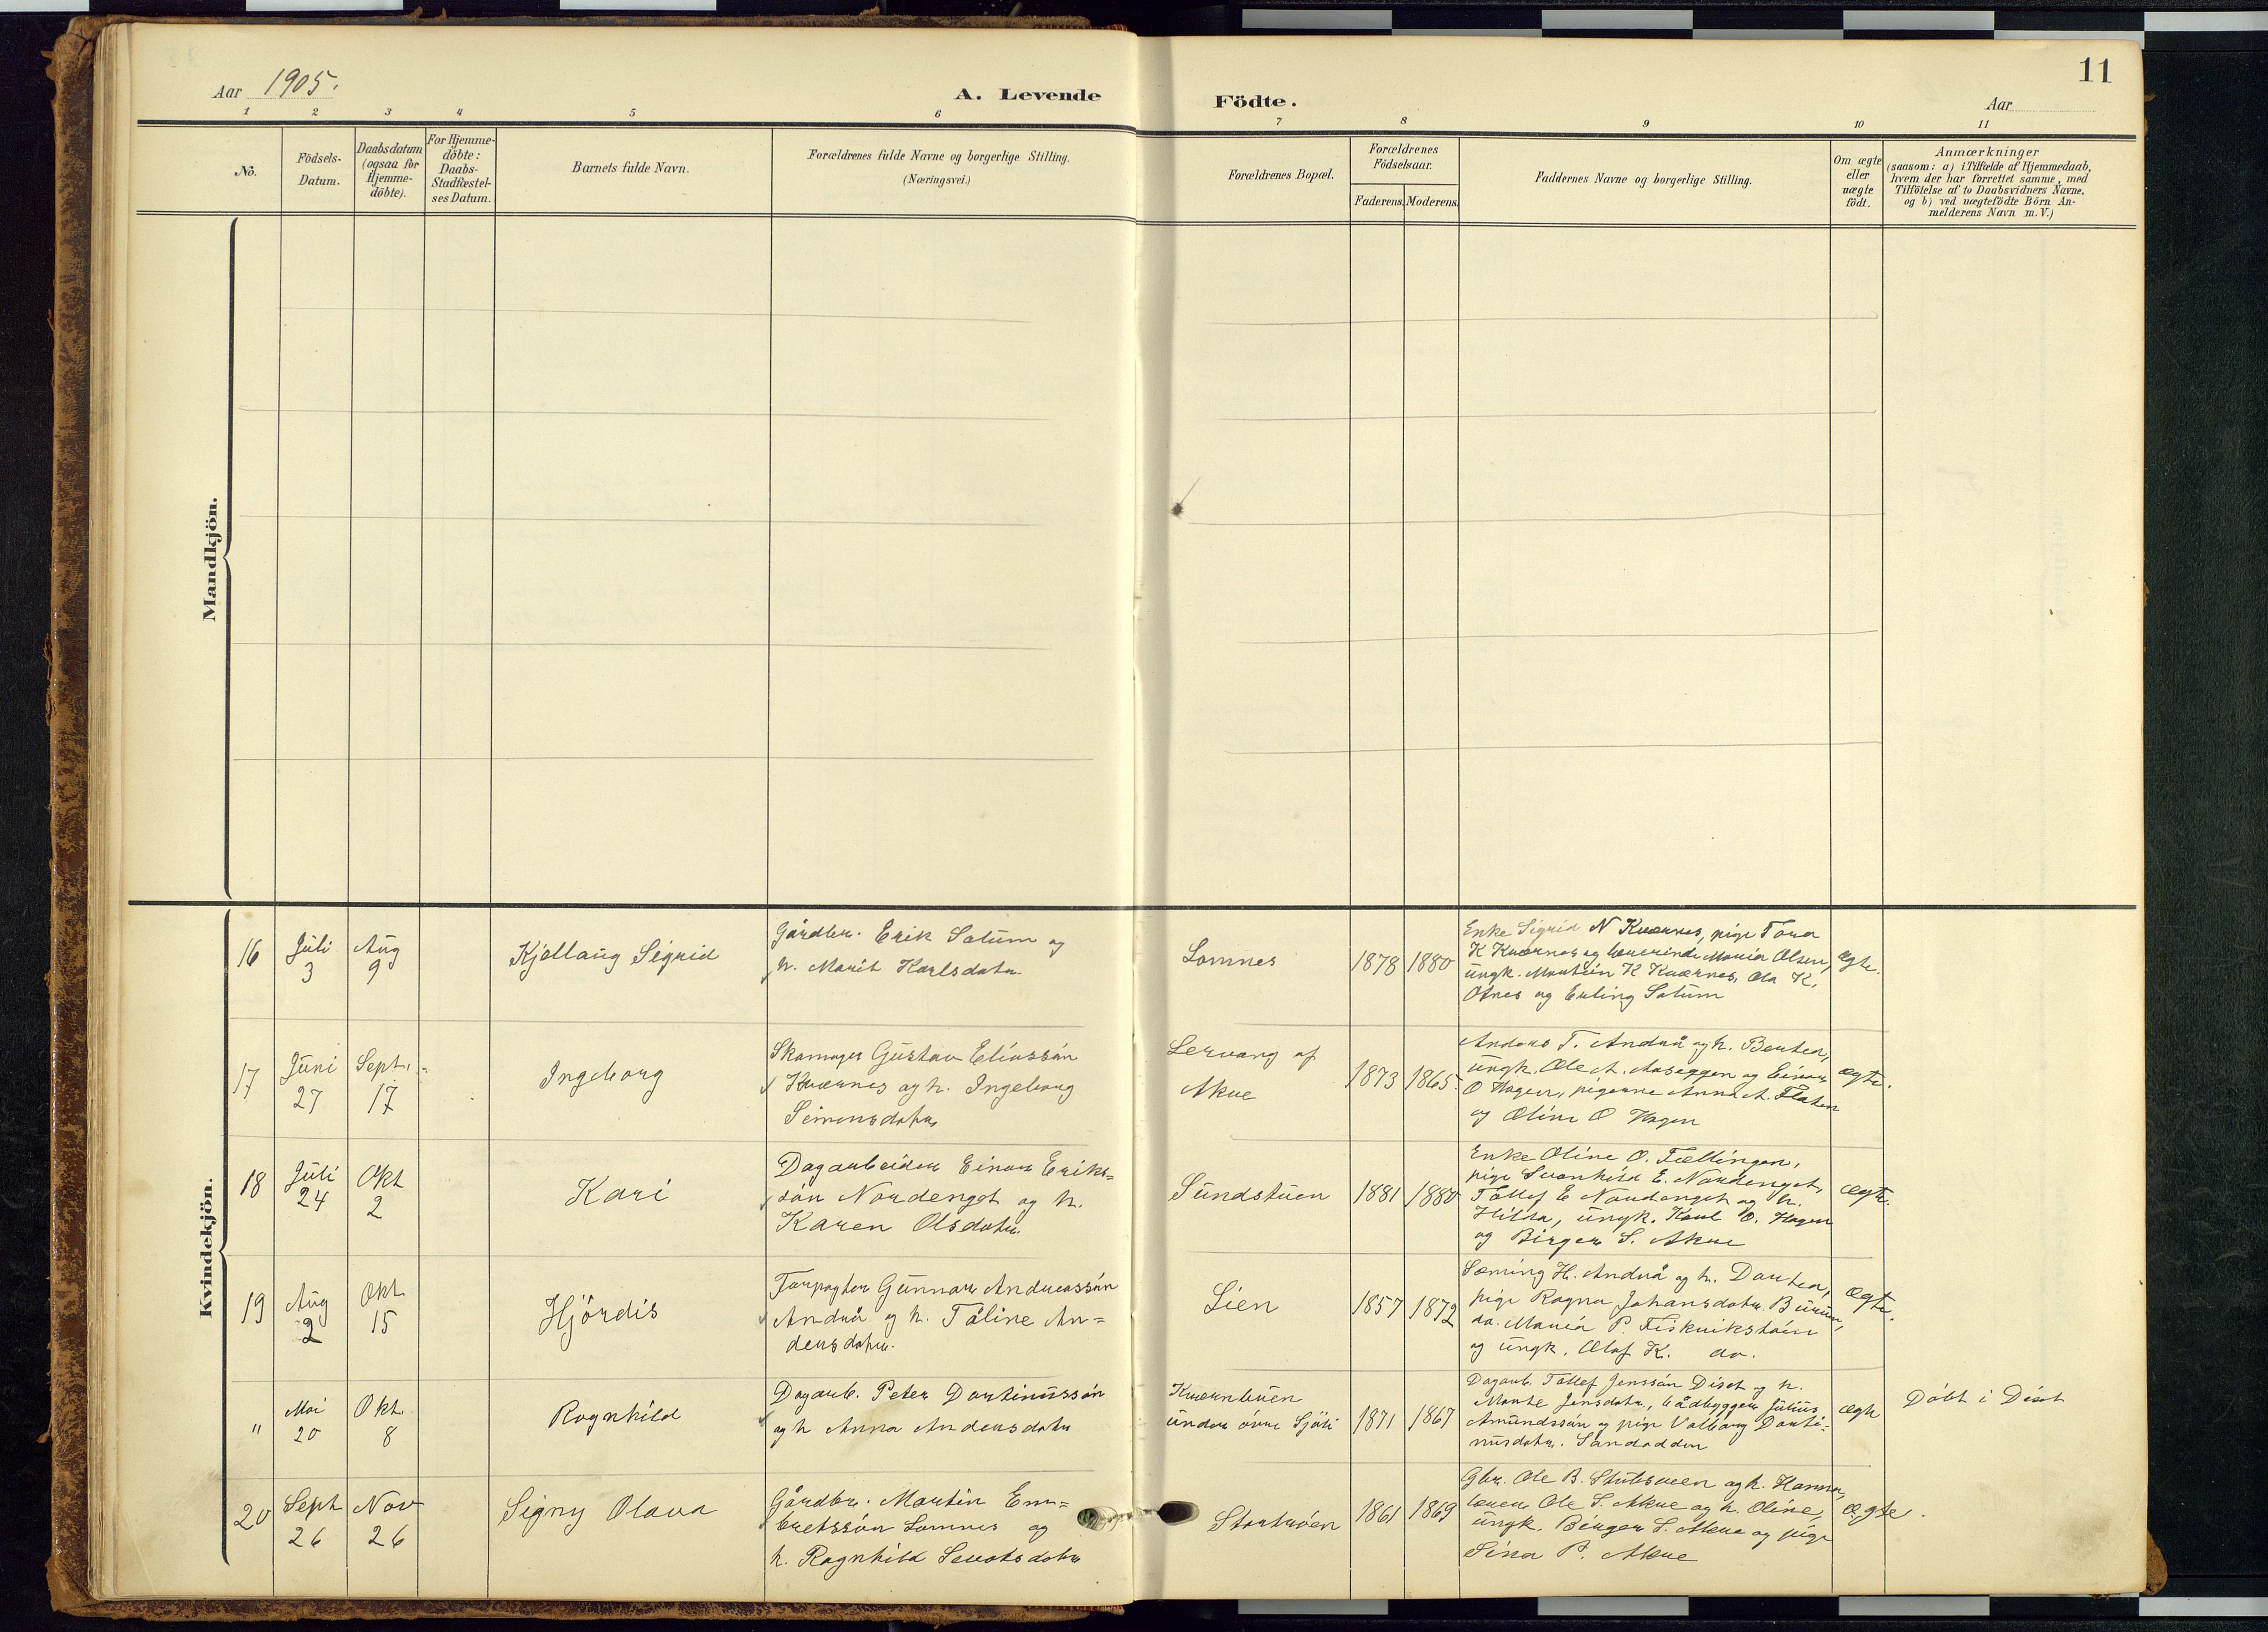 11
Aar 1905.
A. Levende Födte.
Aar
1 2 3 4 5 6 7 8 9 10 11
No.
Födsels-
Datum.
Daabsdatum
(ogsaa for
Hjemme-
döbte).
For Hjemme-
döbte:
Daabs-
Stadfæstel-
ses Datum.
Barnets fulde Navn.
Forældrenes fulde Navne og borgerlige Stilling.
(Næringsvei.)
Forældrenes Bopæl.
Forældrenes
Födselsaar.
Faderens. Moderens.
Faddernes Navne og borgerlige Stilling.
Om ægte
eller
uægte
födt.
Anmærkninger
(saasom: a) i Tilfælde af Hjemmedaab,
hvem der har forrettet samme, med
Tilföielse af to Daabsvidners Navne,
og b) ved uægtefödte Börn An-
melderens Navn m. V.)
Mandkjön.
Kvindekjön.
16
Juli
3
Aug
9
Kjellaug Sigrid
Gårdbr. Erik Satum og
h. Marit Karlsdatr
Lomnes
1878 1880
Enke Sigrid N Kværnes, pige Tora
K Kværnes og Maria Olsen,
ungk. Martin K Kværnes, Ola K.
Otnes og Erling Satum
ægte.
17
Juni
27
Sept.
17
Ingeborg
Skomager Gustav Eliassön
Kværnes og h. Ingeborg
Simensdatr
Lervang af
Akre
1873 1865
Anders T. Andrå og h. Bertea,
ungk. Ole A. Aaseggen og Einar
O Hagen, pigerne Anna A. Flaten
og Oline O Hagen
ægte.
18
Juli
24
Okt
2
Kari
Dagarbeider Einar Eriks=
sön Nordenget og h.
Karen Olsdatr.
Sundstuen
1881 1880
Enke Oline O. Fællingen,
pige Svanhild E. Nordenget,
Tollef E Nordenget og h.
Hilda, ungk. Karl O. Hagen
og Birger S. Akre
ægte.
19
Aug
2
Okt
15
Hjördis
Forpagter Gunnar Andreassön
Andrå og h. Toline An=
dersdatr.
Lien
1857 1872
Sæming H. Andrå og h. Dortea,
pige Ragna Johansdatr. Burum,
do. Maria P. Fiskvikstöin
og ungk. Olaf K. do.
ægte.
"
Mai
20
Okt.
8
Ragnhild
Dagarb. Peter Dortinussön
og h Anna Andersdatr
Kværnbuen
under övre Sjöli
1871 1867
Dagarb. Tollef Jenssön Diset og h.
Marte Jensdatr., bådbygger Julius
Amundssön og pige Valborg Dorti=
nusdatr. Sandodden
ægte
Döbt i Diset
20
Sept
26
Nov
26
Signy Olava
Gårdbr. Martin Em=
bretssön Lomnes og
h. Ragnhild Sevatsdatr
Stortröen
1861 1869
Gbr. Ole B. Stubsveen og h. Hanna,
lærer Ole S. Akre og h. Oline,
ungk. Birger S. Akre og pige
Sina P. Akre
ægte.